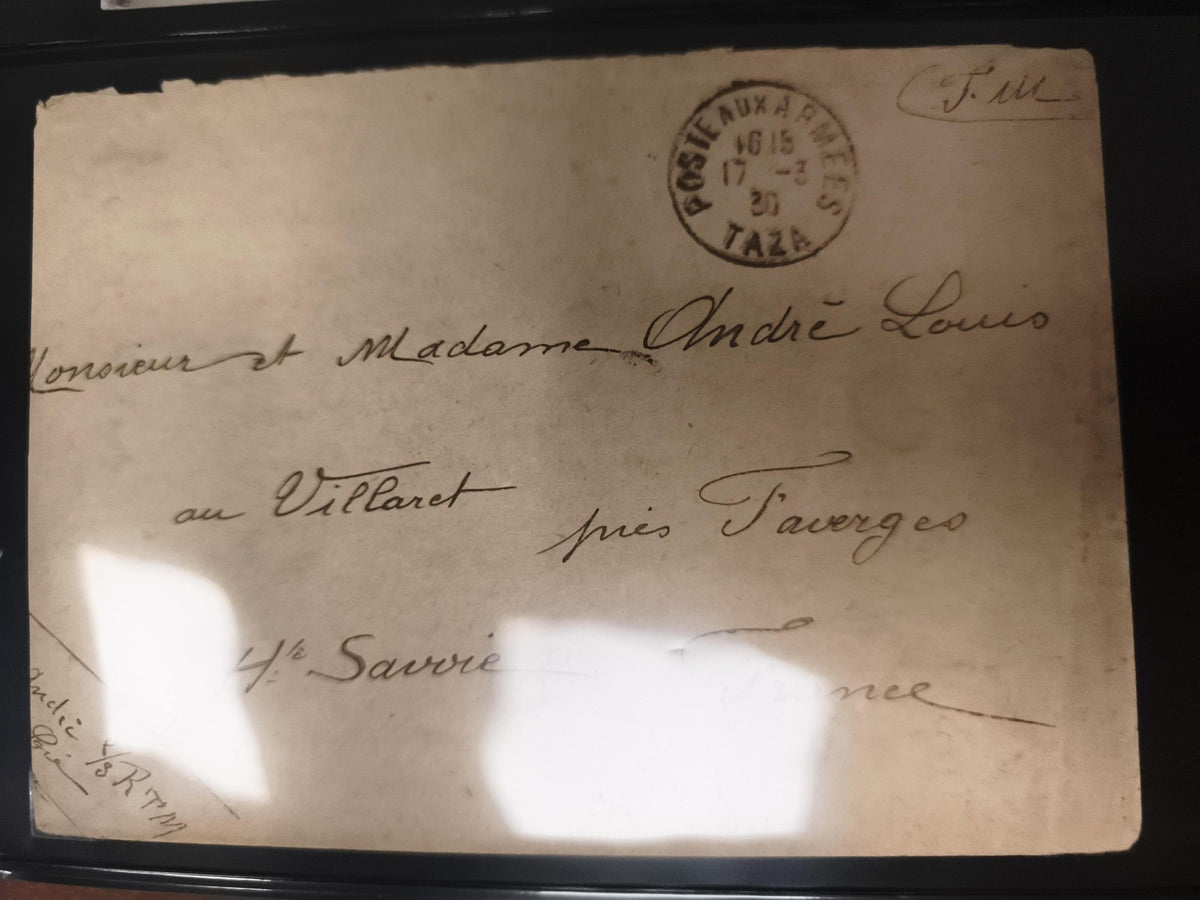 F.M
POSTE AUX ARMEES
16 15
17 -3
30
TAZA
Monsieur et Madame André Louis
au Villaret près Faverges
Hte Savoie France
André
R T M